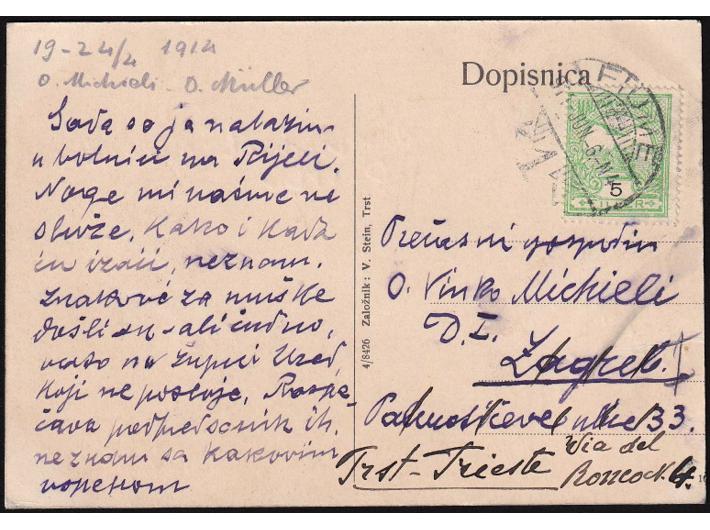 19-24/4 1914
O. Michieli - O. Müller
Dopisnica
FIUME
5
Sada se ja nalazim
u bolnici na Rijeci.
Noge mi
Kako i kada
ću izaći, neznam.
Znakove za muške
došli su - ali čudno,
na župni Ured
koji ne postoji.
podpredsednik ih,
neznam sa kakovim
uspehom
4/8426 Založnik: V. Stein, Trst
Prečasni gospodin
O. Vinko Michieli
D. I.
Zagreb.
Palmotićeva ulica 33.
Trst-Trieste
Via del
Ronco 4.